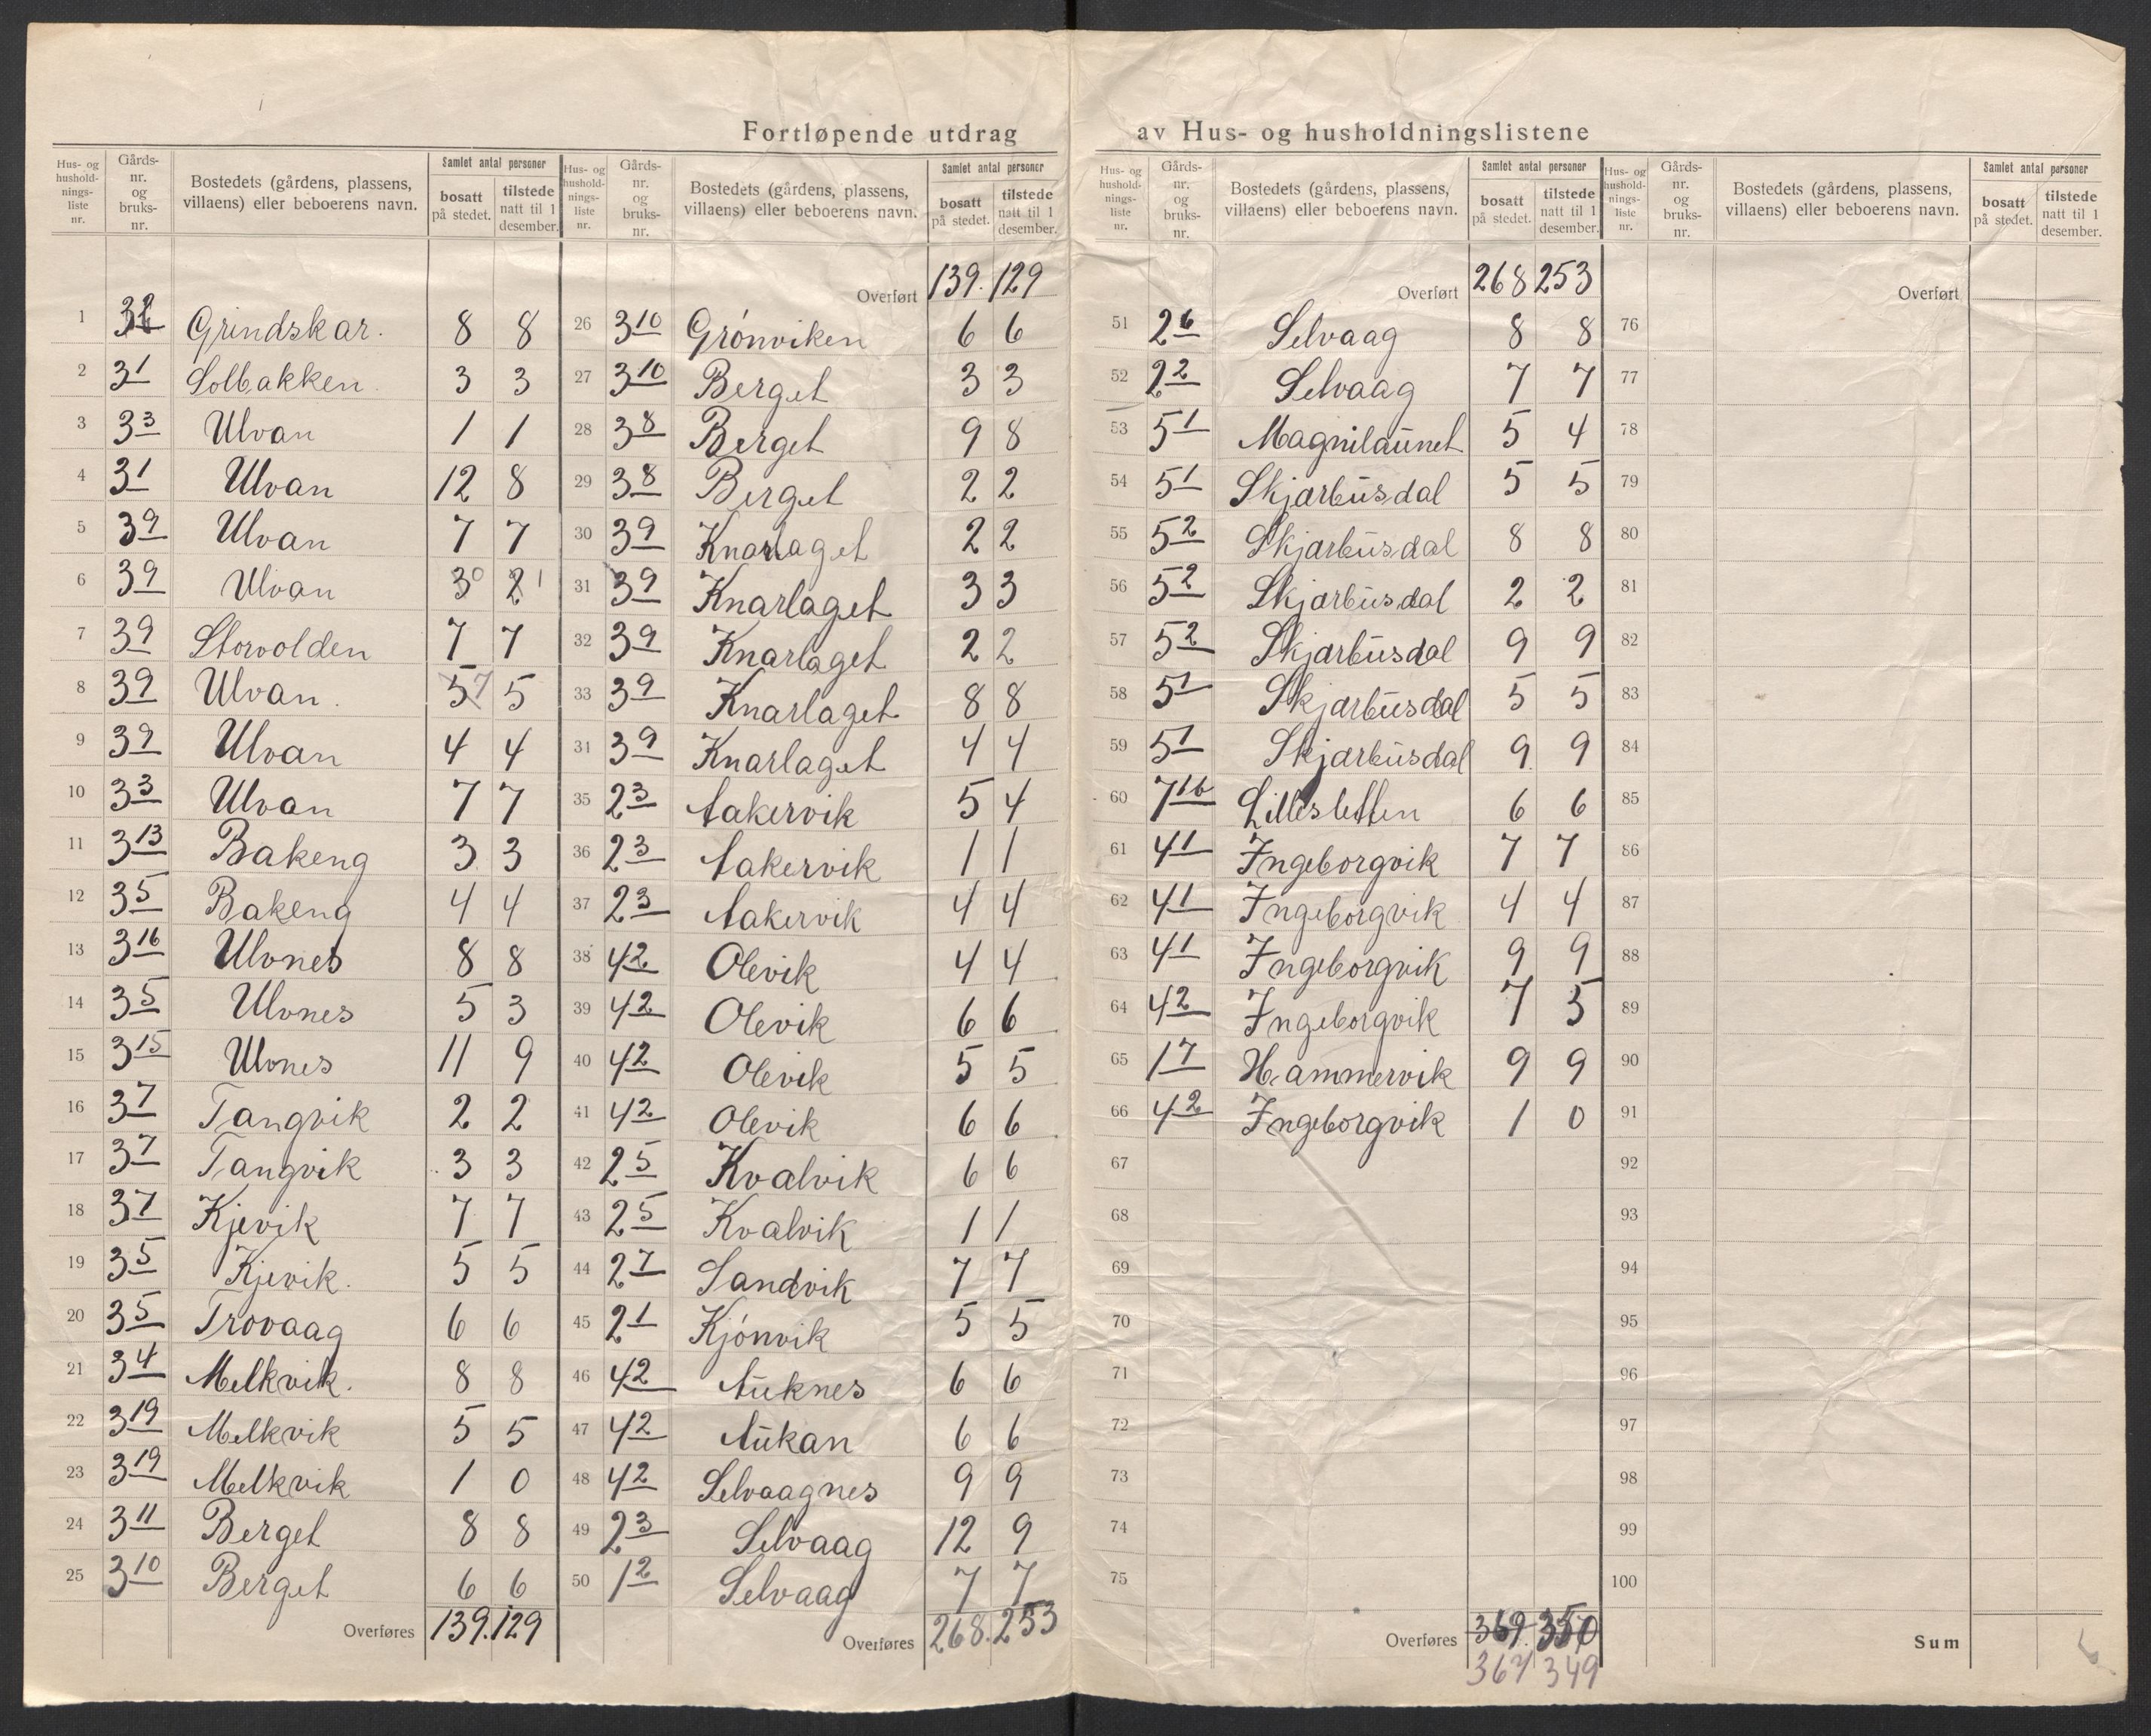 Fortløpende utdrag av Hus- og husholdningslistene
Hus- og husholdningsliste nr. | Gårds-nr. og bruks-nr. | Bostedets (gårdens, plassens, villaens) eller beboerens navn. | Samlet antal personer | bosatt på stedet. | tilstede natt til 1 desember.
1 Grindskar. 8 8
2 3 1 Solbakken 3 3
3 3 3 Ulvan 1 1
4 3 1 Ulvan 12 8
5 3 9 Ulvan 7 7
6 3 9 Ulvan 3 0 2 1
7 3 9 Storvolden 7 7
8 3 9 Ulvan. 5 7 5
9 3 9 Ulvan 4 4
10 3 3 Ulvan 7 7
11 3 13 Bakeng 3 3
12 3 5 Bakeng 4 4
13 3 16 Ulvnes 8 8
14 3 5 Ulvnes 5 3
15 3 15 Ulvnes 11 9
16 3 7 Tangvik 2 2
17 3 7 Tangvik 3 3
18 3 7 Kjevik 7 7
19 3 5 Kjevik. 5 5
20 3 5 Trovaag 6 6
21 3 4 Melkvik. 8 8
22 3 19 Melkvik 5 5
23 3 19 Melkvik 1 0
24 3 11 Berget 8 8
25 3 10 Berget 6 6
Overføres 139. 129
Hus- og husholdningsliste nr. | Gårds-nr. og bruks-nr. | Bostedets (gårdens, plassens, villaens) eller beboerens navn. | Samlet antal personer | bosatt på stedet. | tilstede natt til 1 desember.
Overført 139. 129
26 3 10 Grönviken 6 6
27 3 10 Berget 3 3
28 3 8 Berget 9 8
29 3 8 Berget 2 2
30 3 9 Knarlaget 2 2
31 3 9 Knarlaget 3 3
32 3 9 Knarlaget 2 2
33 3 9 Knarlaget 8 8
31 3 9 Knarlaget 4 4
35 2 3 Aakervik 5 4
36 2 3 Aakervik 1 1
37 2 3 Aakervik 4 4
38 4 2 Olevik 4 4
39 4 2 Olevik 6 6
40 4 2 Olevik 5 5
41 4 2 Olevik 6 6
42 2 5 Kvalvik 6 6
43 2 5 Kvalvik 1 1
44 2 7 Sandvik 7 7
45 2 1 Kjónvik 5 5
46 4 2 Auknes 6 6
47 4 2 Aukan 6 6
48 4 2 Selvaagnes 9 9
49 2 3 Selvaag 12 9
50 1 2 Selvaag 7 7
Overføres 268. 253
Hus- og husholdningsliste nr. | Gårds-nr. og bruks-nr. | Bostedets (gårdens, plassens, villaens) eller beboerens navn. | Samlet antal personer | bosatt på stedet. | tilstede natt til 1 desember.
Overført 268 253
51 2 6 Selvaag 8 8
52 2 2 Selvaag 7 7
53 5 1 Magnilaunet 5 4
54 5 1 Skjarbusdal 5 5
55 5 2 Skjarbusdal 8 8
56 5 2 Skjarbusdal 2 2
57 5 2 Skjarbusdal 9 9
58 5 1 Skjarbusdal 5 5
59 5 1 Skjarbusdal 9 9
60 7 16 Lillesletten 6 6
61 4 1 Ingeborgvik 7 7
62 4 1 Ingeborgvik 4 4
63 4 1 Ingeborgvik 9 9
64 4 2 Ingeborgvik 7 5
65 1 7 Hammervik 9 9
66 4 2 Ingeborgvik 1 0
67
68
69
70
71
72
73
74
75
Overføres 369. 350
367 349
Hus- og husholdningsliste nr. | Gårds-nr. og bruks-nr. | Bostedets (gårdens, plassens, villaens) eller beboerens navn. | Samlet antal personer | bosatt på stedet. | tilstede natt til 1 desember.
Overført
76
77
78
79
80
81
82
83
84
85
86
87
88
89
90
91
92
93
94
95
96
97
98
99
100
Sum